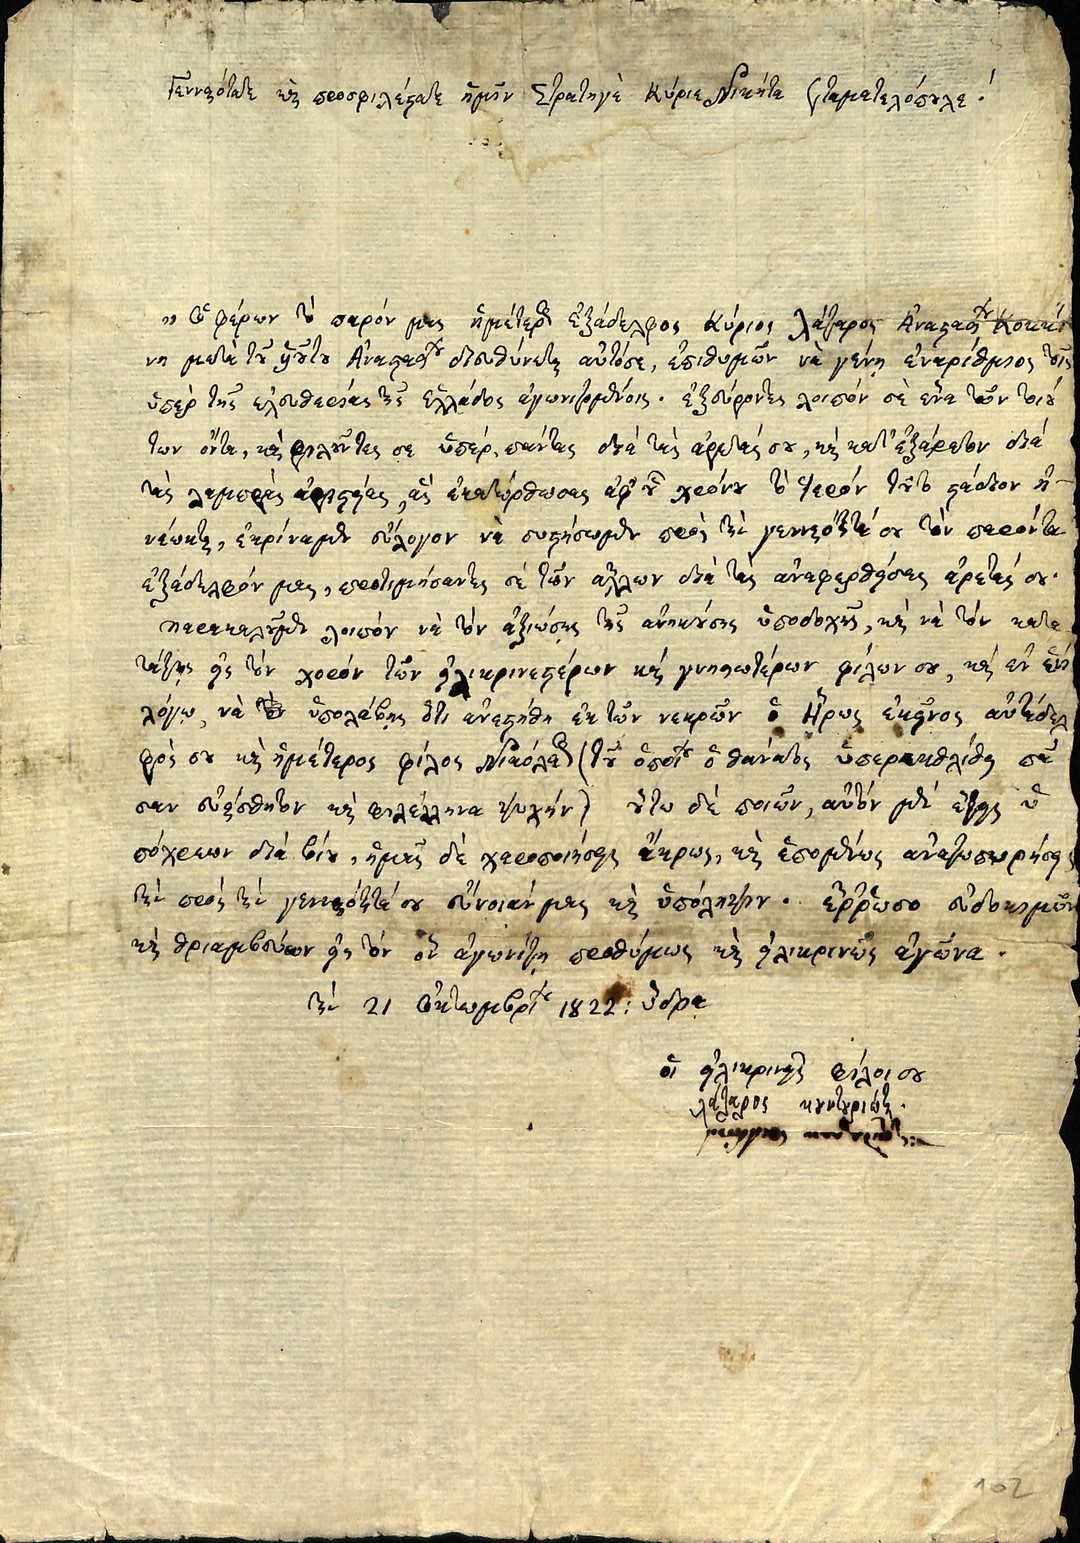 Γενναιότατε καὶ προσφιλέστατε ἡμῖν Στρατηγὲ Κύριε Νικήτα Σταματελόπουλε!
Ὁ φέρων τὸ παρόν μας ἡμέτερος ἐξάδελφος Κύριος Λάζαρος Ἀναστασίου Κοκκί
νη μετὰ τοῦ υἱοῦ του Ἀναστασίου διευθύνεται αὐτόσε, ἐπιθυμῶν νὰ γένῃ ἐναρίθμιος τοῖς
ὑπὲρ τῆς ἐλευθερίας τῆς Ἑλλάδος ἀγωνιζομένοις. ἐξεύροντες λοιπόν σε ἕνα τῶν τοιού
των ὄντα, καὶ φιλοῦντές σε ὑπὲρ πάντας διὰ τὰς ἀρετάς σου, καὶ κατ' ἐξαίρετον διὰ
τὰς λαμπρὰς ἀριστείας, ἃς ἐκατώρθωσας ἀφ' οὗ χρόνου τὸ ἱερὸν τοῦτο στάδιον ἠ-
νέωκται, ἐκρίναμεν εὔλογον νὰ συστήσωμεν πρὸς τὴν γενναιότητά σου τὸν παρόντα
ἐξάδελφόν μας, προτιμήσαντές σε τῶν ἄλλων διὰ τὰς ἀναφερθείσας ἀρετάς σου.
παρακαλοῦμεν λοιπὸν νὰ τὸν ἀξιώσῃς τῆς ἀνηκούσης ὑποδοχῆς, καὶ νὰ τὸν κατα
τάξῃς εἰς τὸν χορὸν τῶν εἰλικρινεστέρων καὶ γνησιωτέρων φίλων σου, καὶ ἐν ἑνὶ
λόγῳ, νὰ ὑπολάβῃς ὅτι ἀνεστήθη ἐκ τῶν νεκρῶν ὁ Ἥρως ἐκεῖνος αὐτάδελ
φός σου καὶ ἡμέτερος φίλος Νικόλαος (τοῦ ὁποίου ὁ θάνατος ὑπερεκθλίβει πᾶ
σαν εὐαίσθητον καὶ φιλέλληνα ψυχήν) οὕτω δὲ ποιῶν, αὐτὸν μὲν ἕξεις ὑ
πόχρεων διὰ βίου, ἡμᾶς δὲ χαροποιήσεις ἄκρως, καὶ ἑπομένως ἀναζωπυρήσεις
τὴν πρὸς τὴν γενναιότητά σου εὔνοιάν μας καὶ ὑπόληψιν. ἔρρωσο εὐδοκιμῶν
καὶ θριαμβεύων εἰς τὸν ὃν ἀγωνίζῃ προθύμως καὶ εἰλικρινῶς ἀγῶνα.
τὴν 21 Ὀκτωμβρίου 1822: ὕδρα
οἱ εἰλικρινεῖς φίλοι σου
λάζαρος κουντουριώτης.
102